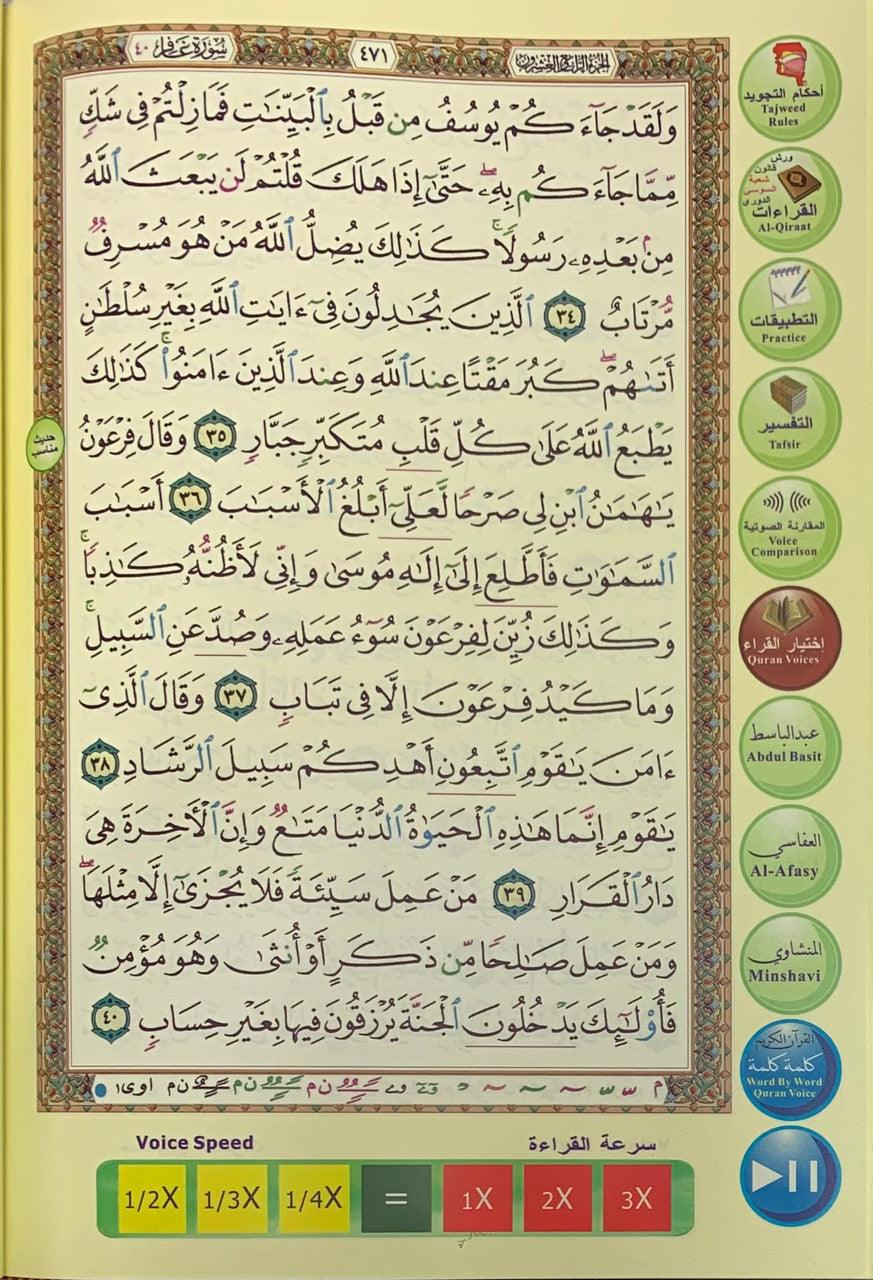 سورة غافر ٤٠
٤٧١
الجزء الرابع والعشرون
وَلَقَدْ جَآءَكُمْ يُوسُفُ مِن قَبْلُ بِٱلْبَيِّنَٰتِ فَمَا زِلْتُمْ فِى شَكٍّ
مِّمَّا جَآءَكُم بِهِۦ ۖ حَتَّىٰٓ إِذَا هَلَكَ قُلْتُمْ لَن يَبْعَثَ ٱللَّهُ
مِنۢ بَعْدِهِۦ رَسُولًا ۚ كَذَٰلِكَ يُضِلُّ ٱللَّهُ مَنْ هُوَ مُسْرِفٌ
مُّرْتَابٌ ٣٤ ٱلَّذِينَ يُجَٰدِلُونَ فِىٓ ءَايَٰتِ ٱللَّهِ بِغَيْرِ سُلْطَٰنٍ
أَتَىٰهُمْ ۖ كَبُرَ مَقْتًا عِندَ ٱللَّهِ وَعِندَ ٱلَّذِينَ ءَامَنُوا۟ ۚ كَذَٰلِكَ
يَطْبَعُ ٱللَّهُ عَلَىٰ كُلِّ قَلْبِ مُتَكَبِّرٍ جَبَّارٍ ٣٥ وَقَالَ فِرْعَوْنُ
يَٰهَٰمَٰنُ ٱبْنِ لِى صَرْحًا لَّعَلِّىٓ أَبْلُغُ ٱلْأَسْبَٰبَ ٣٦ أَسْبَٰبَ
ٱلسَّمَٰوَٰتِ فَأَطَّلِعَ إِلَىٰٓ إِلَٰهِ مُوسَىٰ وَإِنِّى لَأَظُنُّهُۥ كَٰذِبًا ۚ
وَكَذَٰلِكَ زُيِّنَ لِفِرْعَوْنَ سُوٓءُ عَمَلِهِۦ وَصُدَّ عَنِ ٱلسَّبِيلِ ۚ
وَمَا كَيْدُ فِرْعَوْنَ إِلَّا فِى تَبَابٍ ٣٧ وَقَالَ ٱلَّذِىٓ
ءَامَنَ يَٰقَوْمِ ٱتَّبِعُونِ أَهْدِكُمْ سَبِيلَ ٱلرَّشَادِ ٣٨
يَٰقَوْمِ إِنَّمَا هَٰذِهِ ٱلْحَيَوٰةُ ٱلدُّنْيَا مَتَٰعٌ وَإِنَّ ٱلْأٓخِرَةَ هِىَ
دَارُ ٱلْقَرَارِ ٣٩ مَنْ عَمِلَ سَيِّئَةً فَلَا يُجْزَىٰٓ إِلَّا مِثْلَهَا ۖ
وَمَنْ عَمِلَ صَٰلِحًا مِّن ذَكَرٍ أَوْ أُنثَىٰ وَهُوَ مُؤْمِنٌ
فَأُو۟لَٰٓئِكَ يَدْخُلُونَ ٱلْجَنَّةَ يُرْزَقُونَ فِيهَا بِغَيْرِ حِسَابٍ ٤٠
حديث مناسب
أحكام التجويد
Tajweed
Rules
ورش
قالون
شعبة
السوسي
الدوري
القراءات
Al-Qiraat
التطبيقات
Practice
التفسير
Tafsir
المقارنة الصوتية
Voice
Comparison
إختيار القراء
Quran Voices
عبدالباسط
Abdul Basit
العفاسي
Al-Afasy
المنشاوي
Minshavi
القرآن الكريم
كلمة كلمة
Word By Word
Quran Voice
Voice Speed
سرعة القراءة
1/2X 1/3X 1/4X = 1X 2X 3X